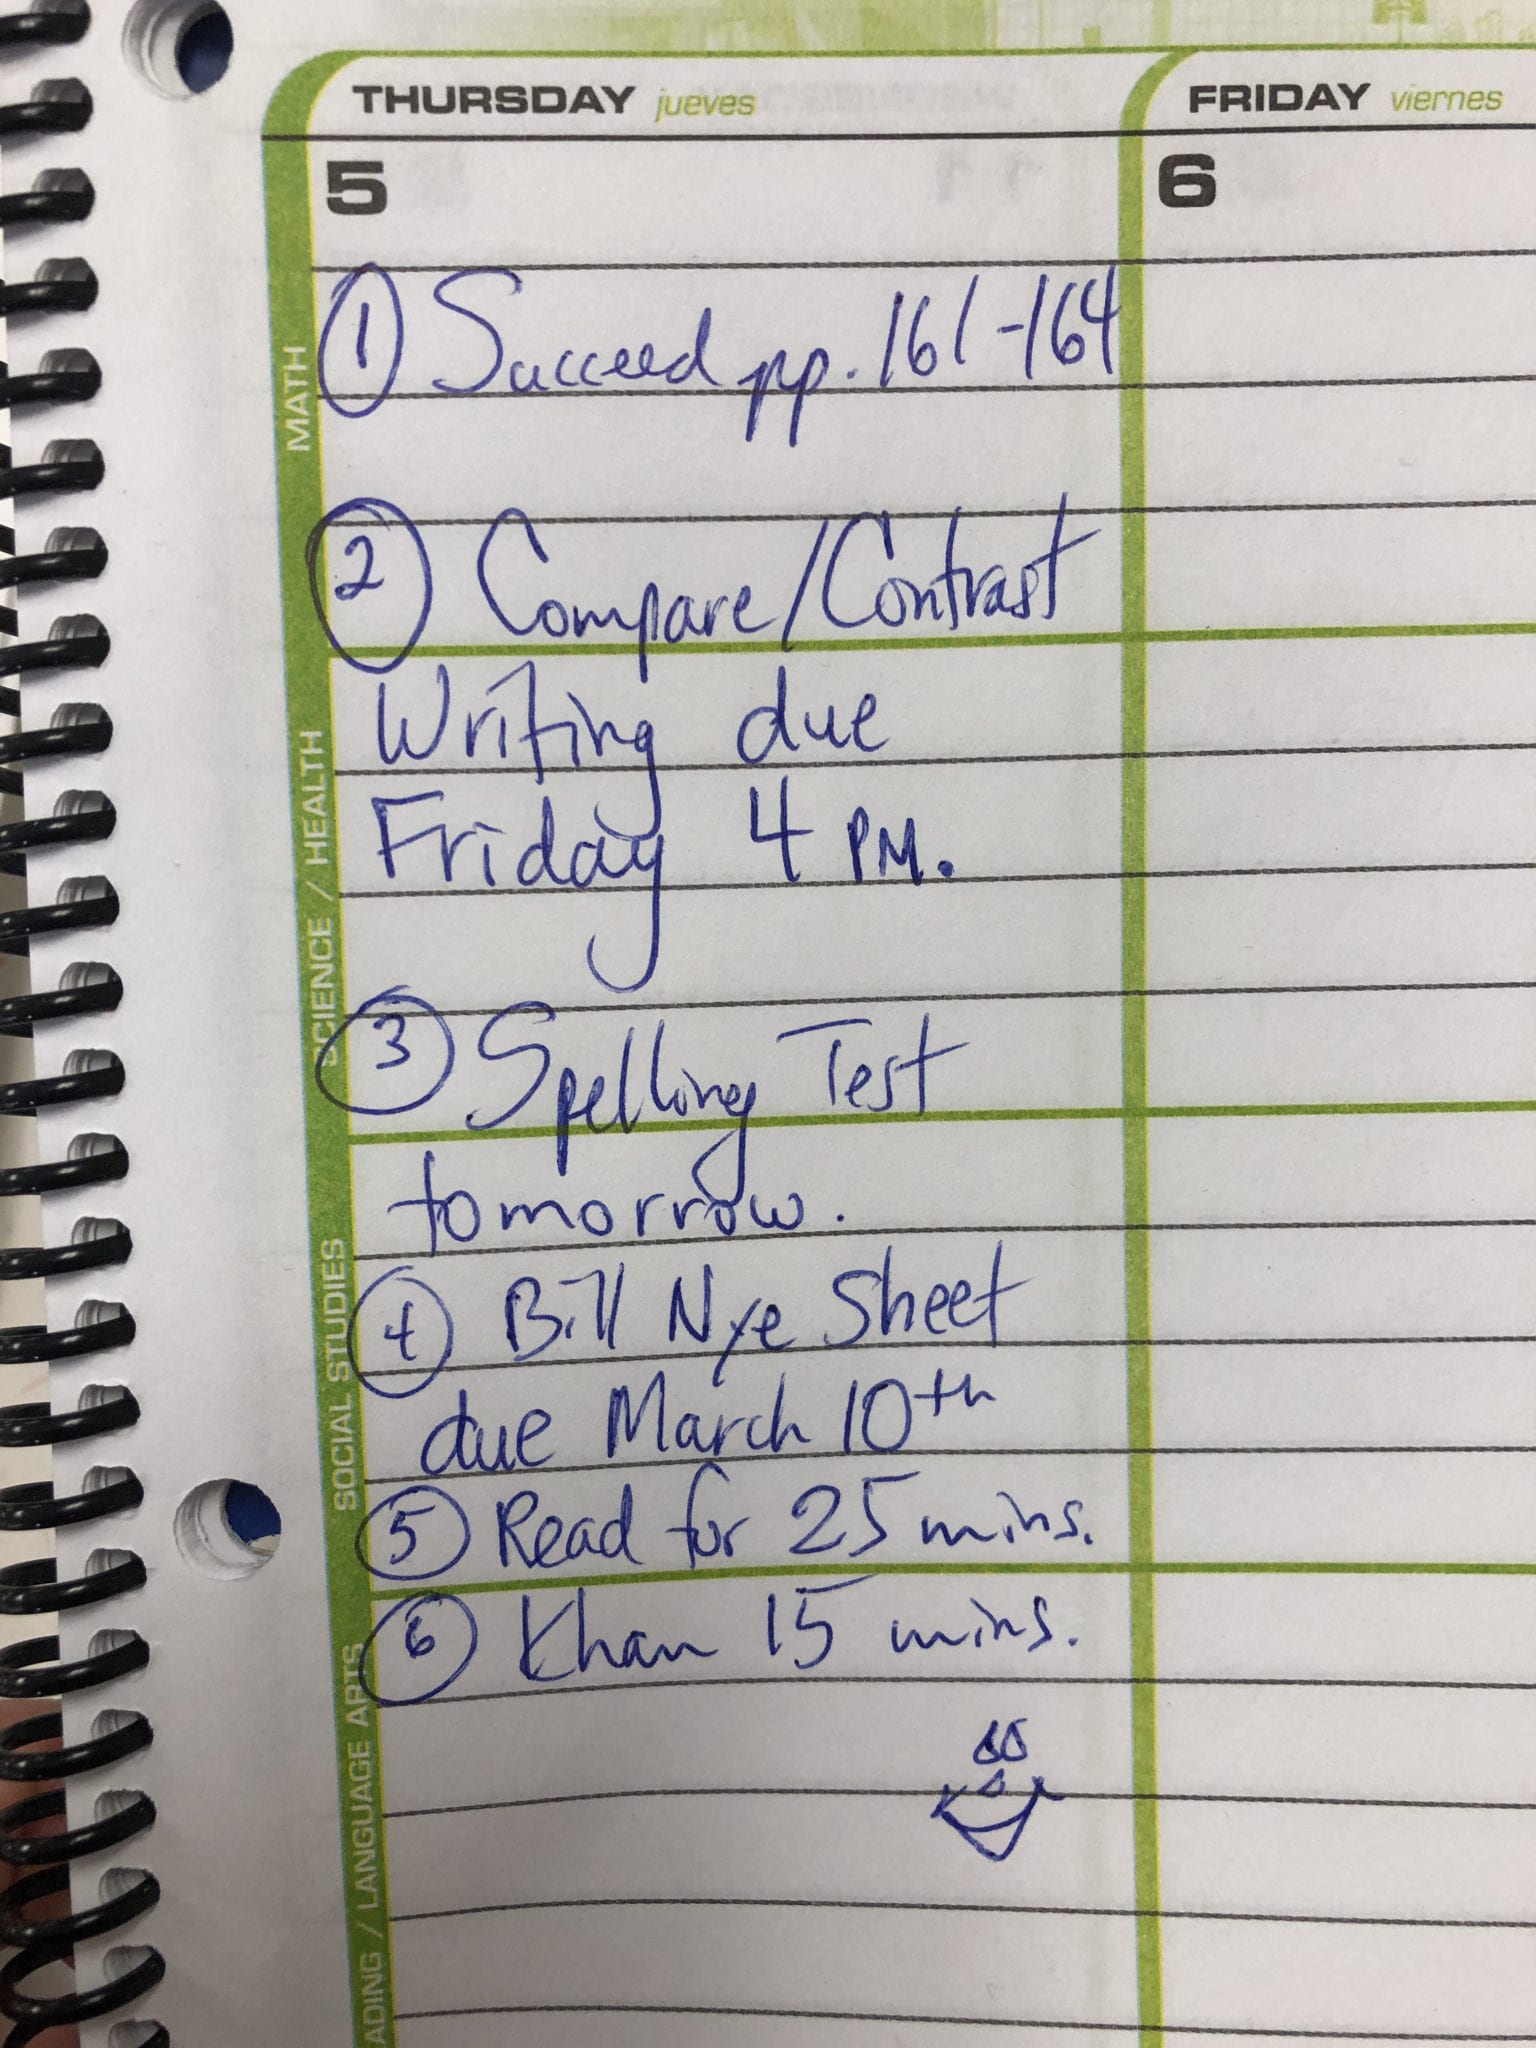 THURSDAY jueves
5
① Succeed pp. 161-164
② Compare/Contrast
Writing due
Friday 4 PM.
③ Spelling Test
tomorrow.
④ Bill Nye Sheet
due March 10th
⑤ Read for 25 mins.
⑥ Khan 15 mins.
FRIDAY viernes
6
MATH
SCIENCE / HEALTH
SOCIAL STUDIES
ADING / LANGUAGE ARTS